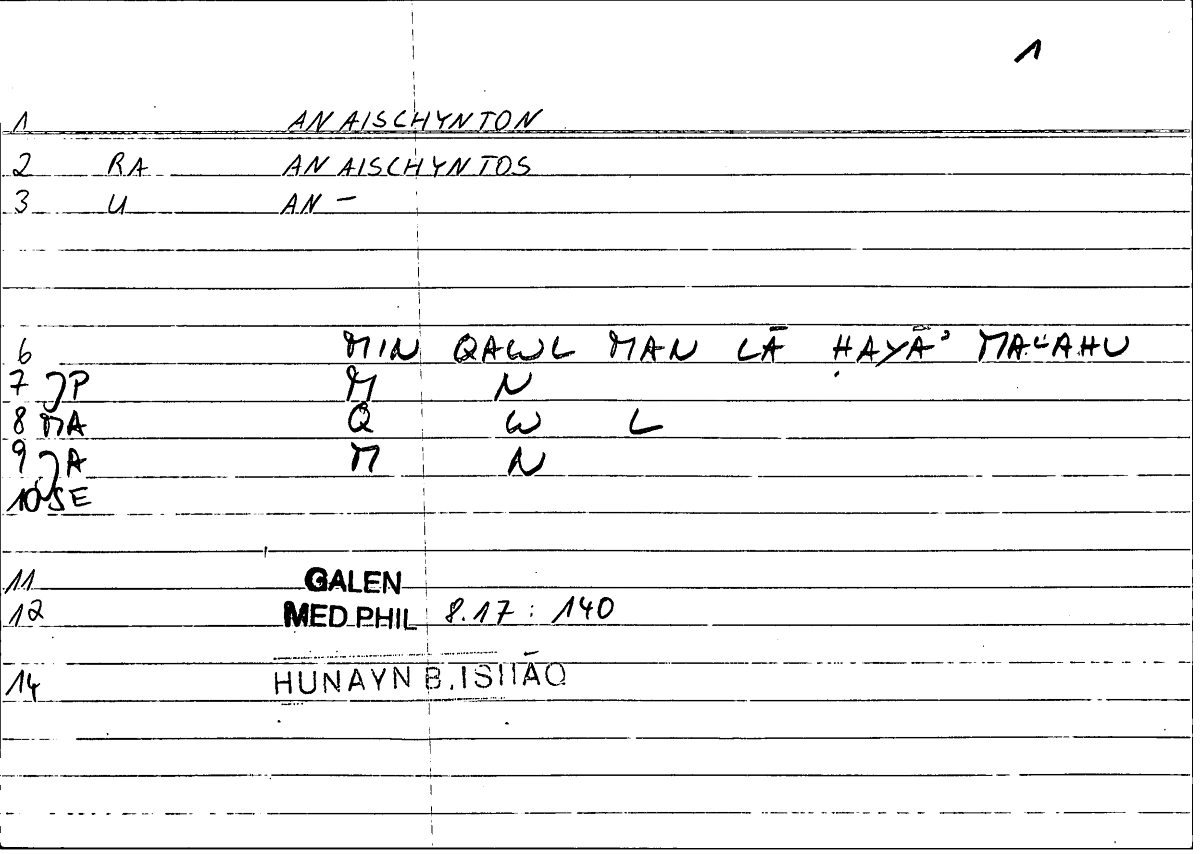 1
1 ANAISCHYNTON
2 RA ANAISCHYNTOS
3 U AN-
6 MIN QAWL MAN LĀ ḤAYĀʾ MAʿAHU
7 JP M N
8 MA Q W L
9 JA M N
10 SE
11 GALEN
12 MED PHIL 8.17 : 140
14 HUNAYN B. ISḤĀQ